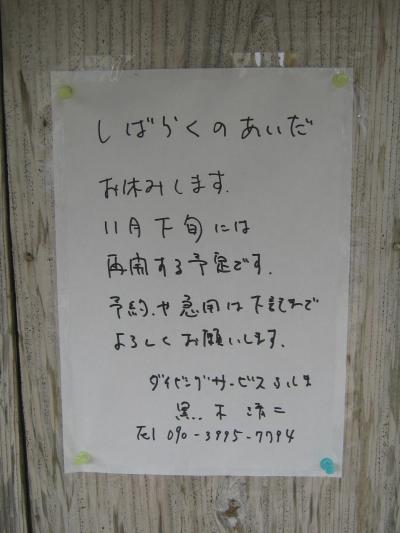 しばらくのあいだ
お休みします.
11月下旬には
再開する予定です.
予約や急用は下記まで
よろしくお願いします.
ダイビングサービス
黒木
Tel 090-3995-7794